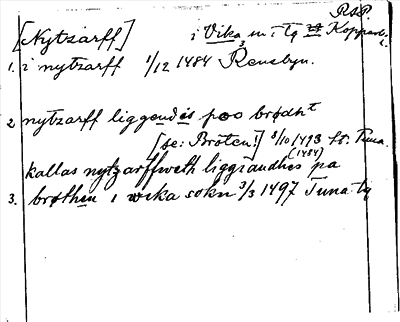 RSP.
[Nytzarff] i Vika sn i tg Kopparb. l.
1. i nytzarff 1/12 1484 Renebyn.
2 nytzarff liggendes poo brødht
[se: Broten!] 8/10 1493 St. Tuna.
kallas nytzarffweth liggiandhes pa (1484)
3. brøthen i wika sokn 3/3 1497 Tuna tg